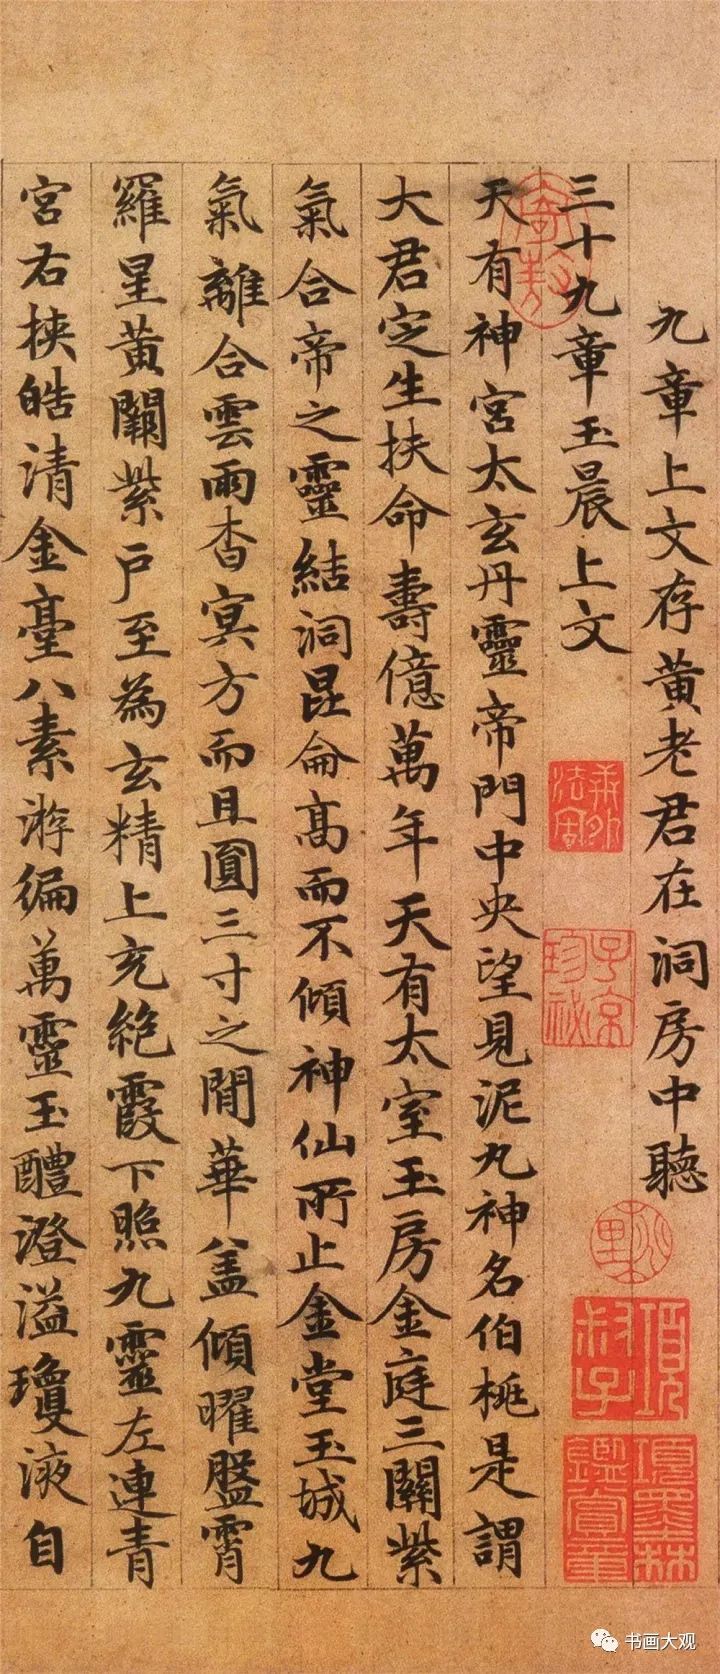 九章上文存黄老君在洞房中聽
三十九章玉晨上文
天有神宮太玄丹靈帝門中央望見泥丸神名伯桃是謂
大君定生扶命壽億萬年天有太室玉房金庭三關紫
氣合帝之靈結洞昆侖髙而不傾神仙所止金堂玉城九
氣離合雲雨杳冥方而且圓三寸之間華盖傾曜盤霄
羅星黄闕紫户至為玄精上充絶霞下照九靈左連青
宮右挾皓清金臺八素游徧萬靈玉醴澄溢瓊液自
子京
珍秘
項
叔子
項墨林
鑑賞章
书画大观